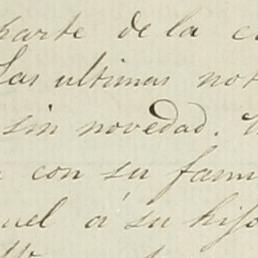 parte de la c
Las ultimas not
sin novedad.
con su fami
uel á su hijo